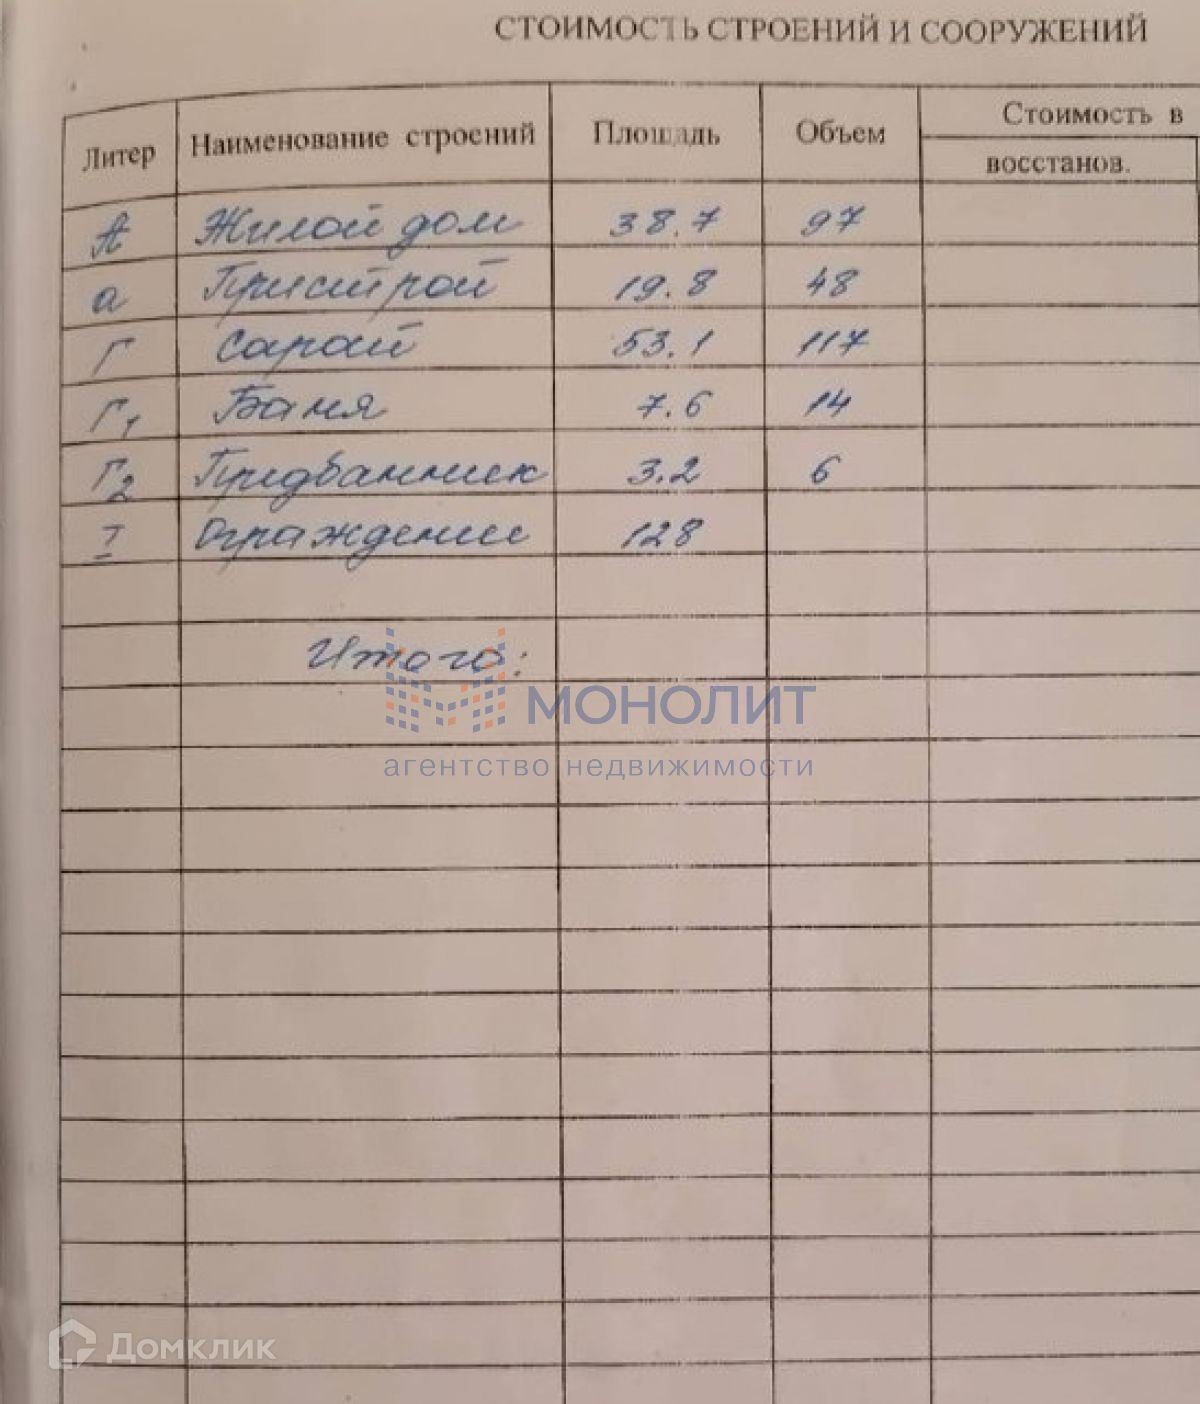 СТОИМОСТЬ СТРОЕНИЙ И СООРУЖЕНИЙ
Литер Наименование строений Площадь Объем Стоимость в
восстанов.
А Жилой дом 38.7 97
а Пристрой 19.8 48
Г Сарай 53.1 117
Г1 Баня 7.6 14
Г2 Предбанник 3.2 6
I Ограждение 128
Итого:
МОНОЛИТ
агентство недвижимости
Домклик